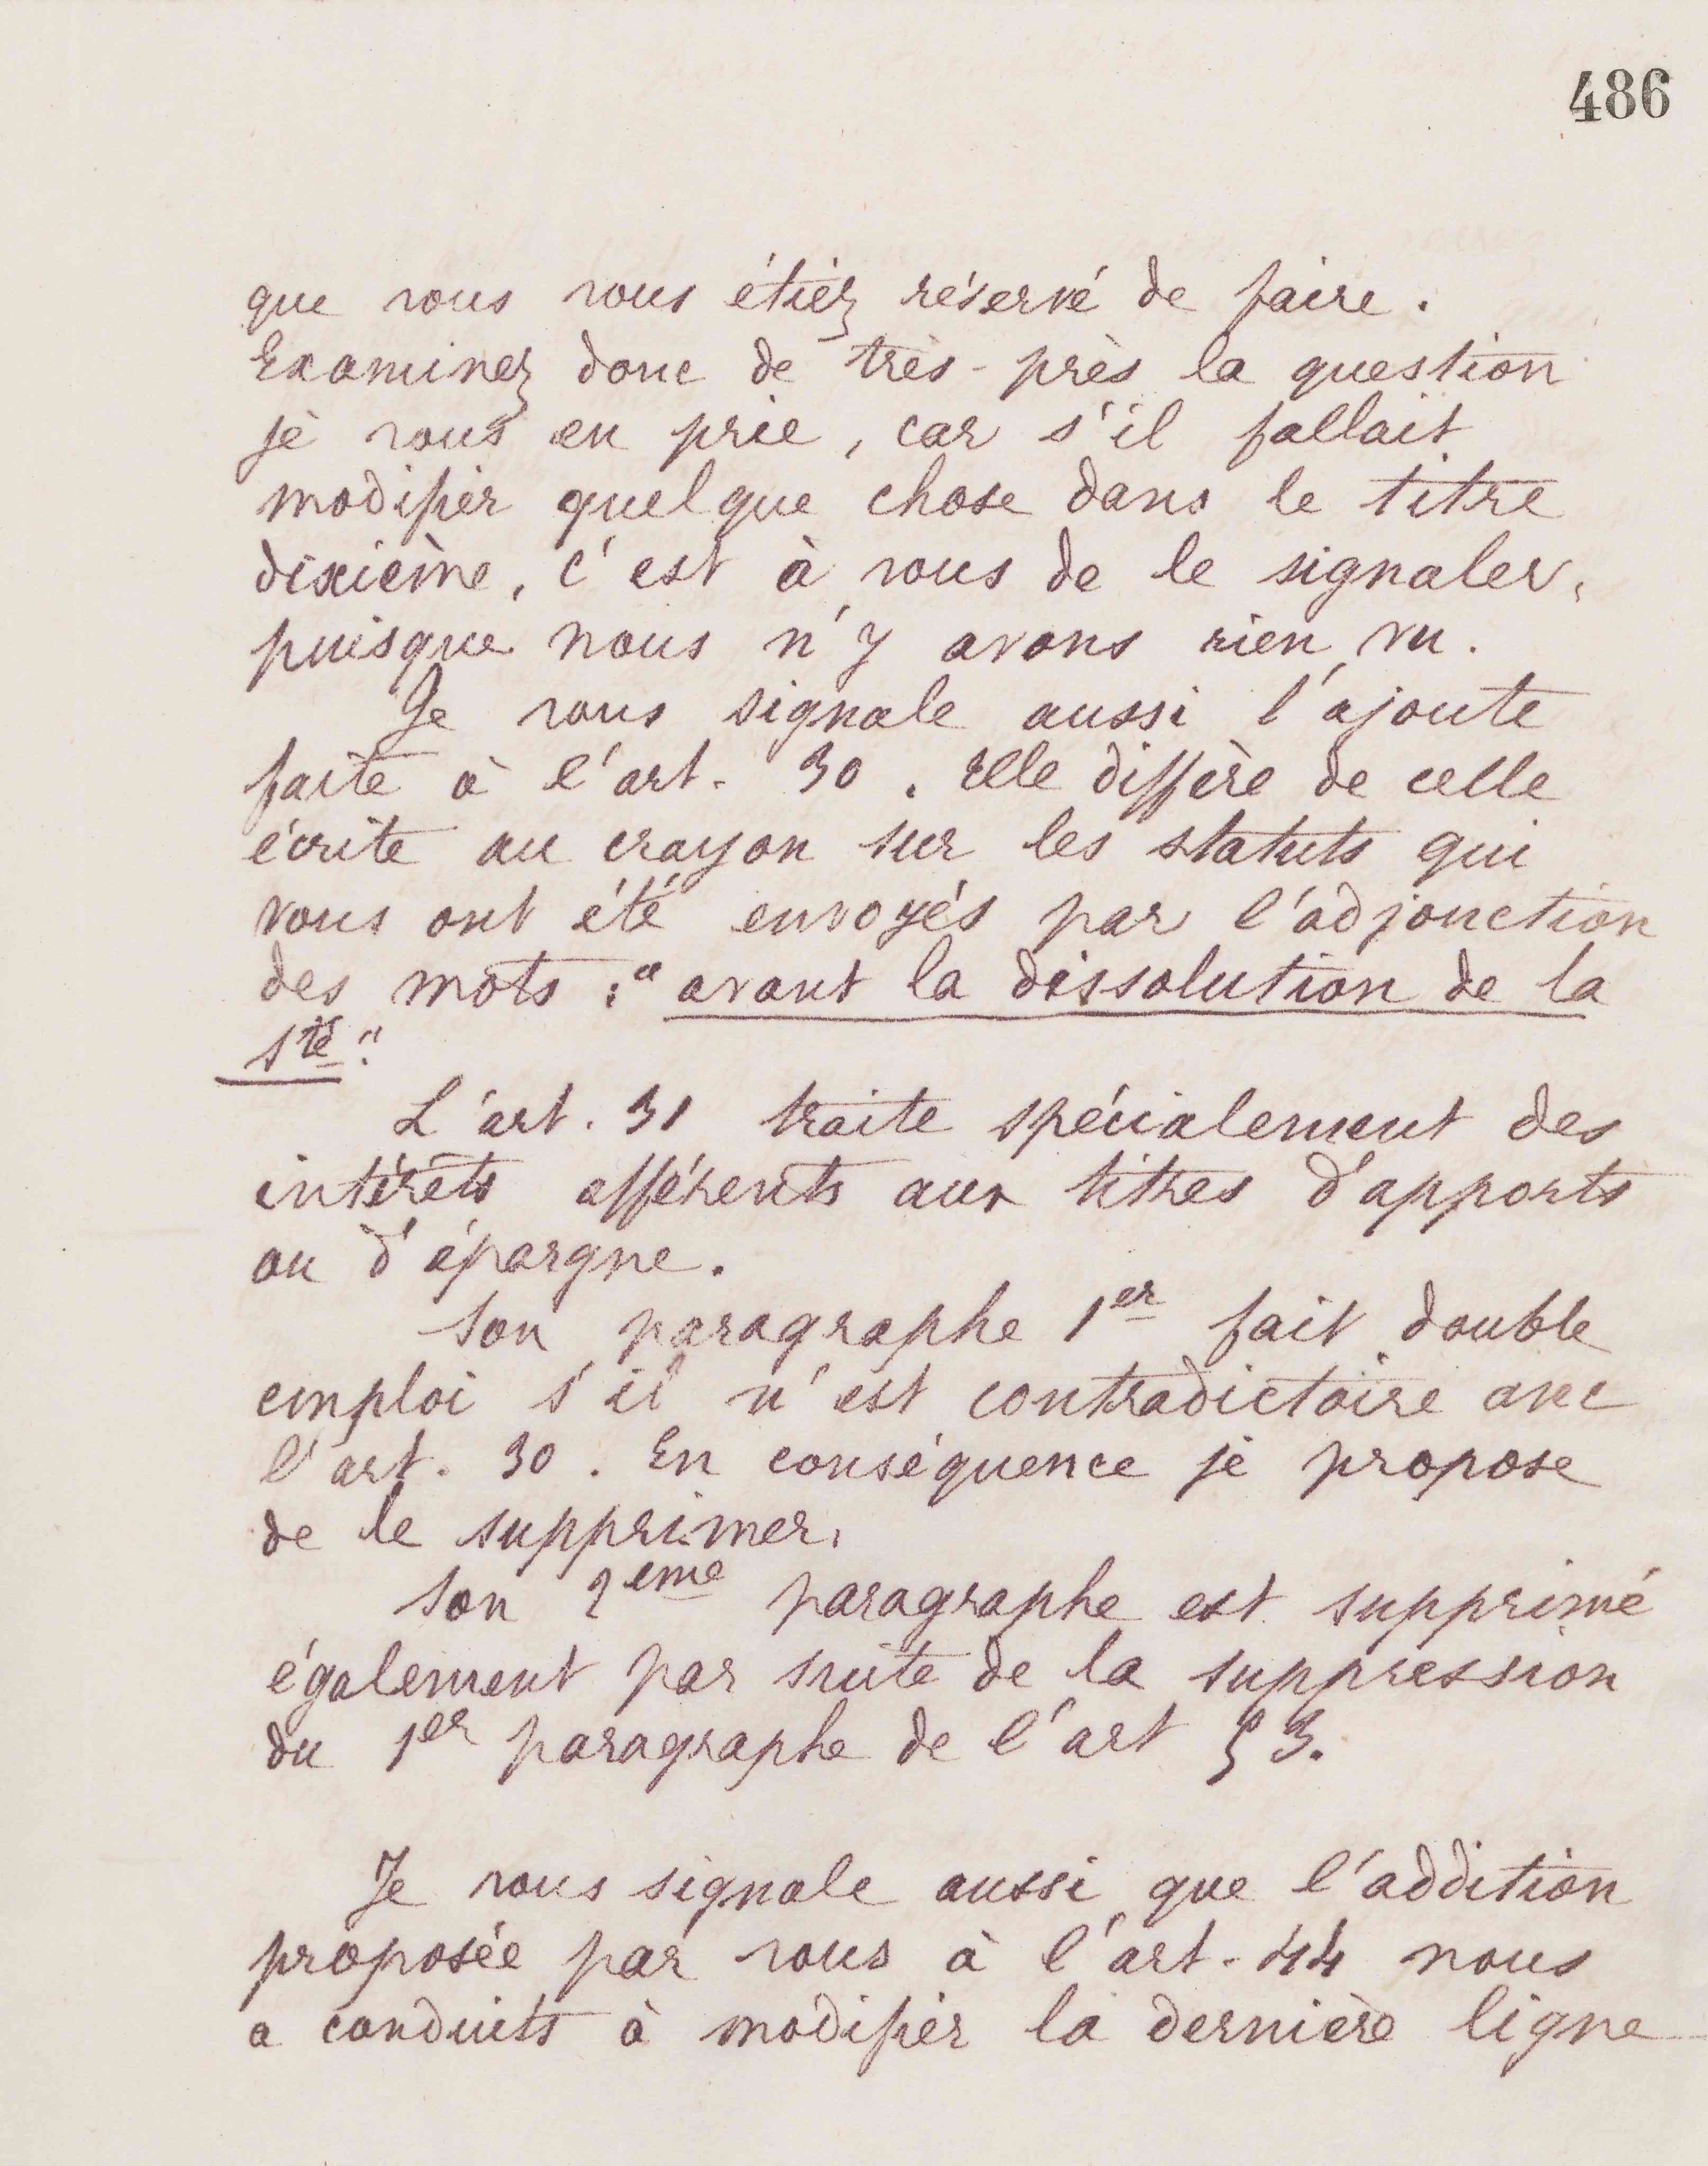 486
que vous vous étiez réservé de faire.
Examinez donc de très-près la question
je vous en prie, car s'il fallait
modifier quelque chose dans le titre
dixième, c'est à vous de le signaler,
puisque nous n'y avons rien vu.
Je vous signale aussi l'ajoute
faite à l'art. 30. Elle diffère de celle
écrite au crayon sur les statuts qui
vous ont été envoyés par l'adjonction
des mots : "avant la dissolution de la
Sté".
L'art. 31 traite spécialement des
intérêts afférents aux titres d'apports
ou d'épargne.
Son paragraphe 1er fait double
emploi s'il n'est contradictoire avec
l'art. 30. En conséquence je propose
de le supprimer.
Son 2eme paragraphe est supprimé
également par suite de la suppression
du 1er paragraphe de l'art 53.
Je vous signale aussi que l'addition
proposée par vous à l'art. 44 nous
a conduits à modifier la dernière ligne